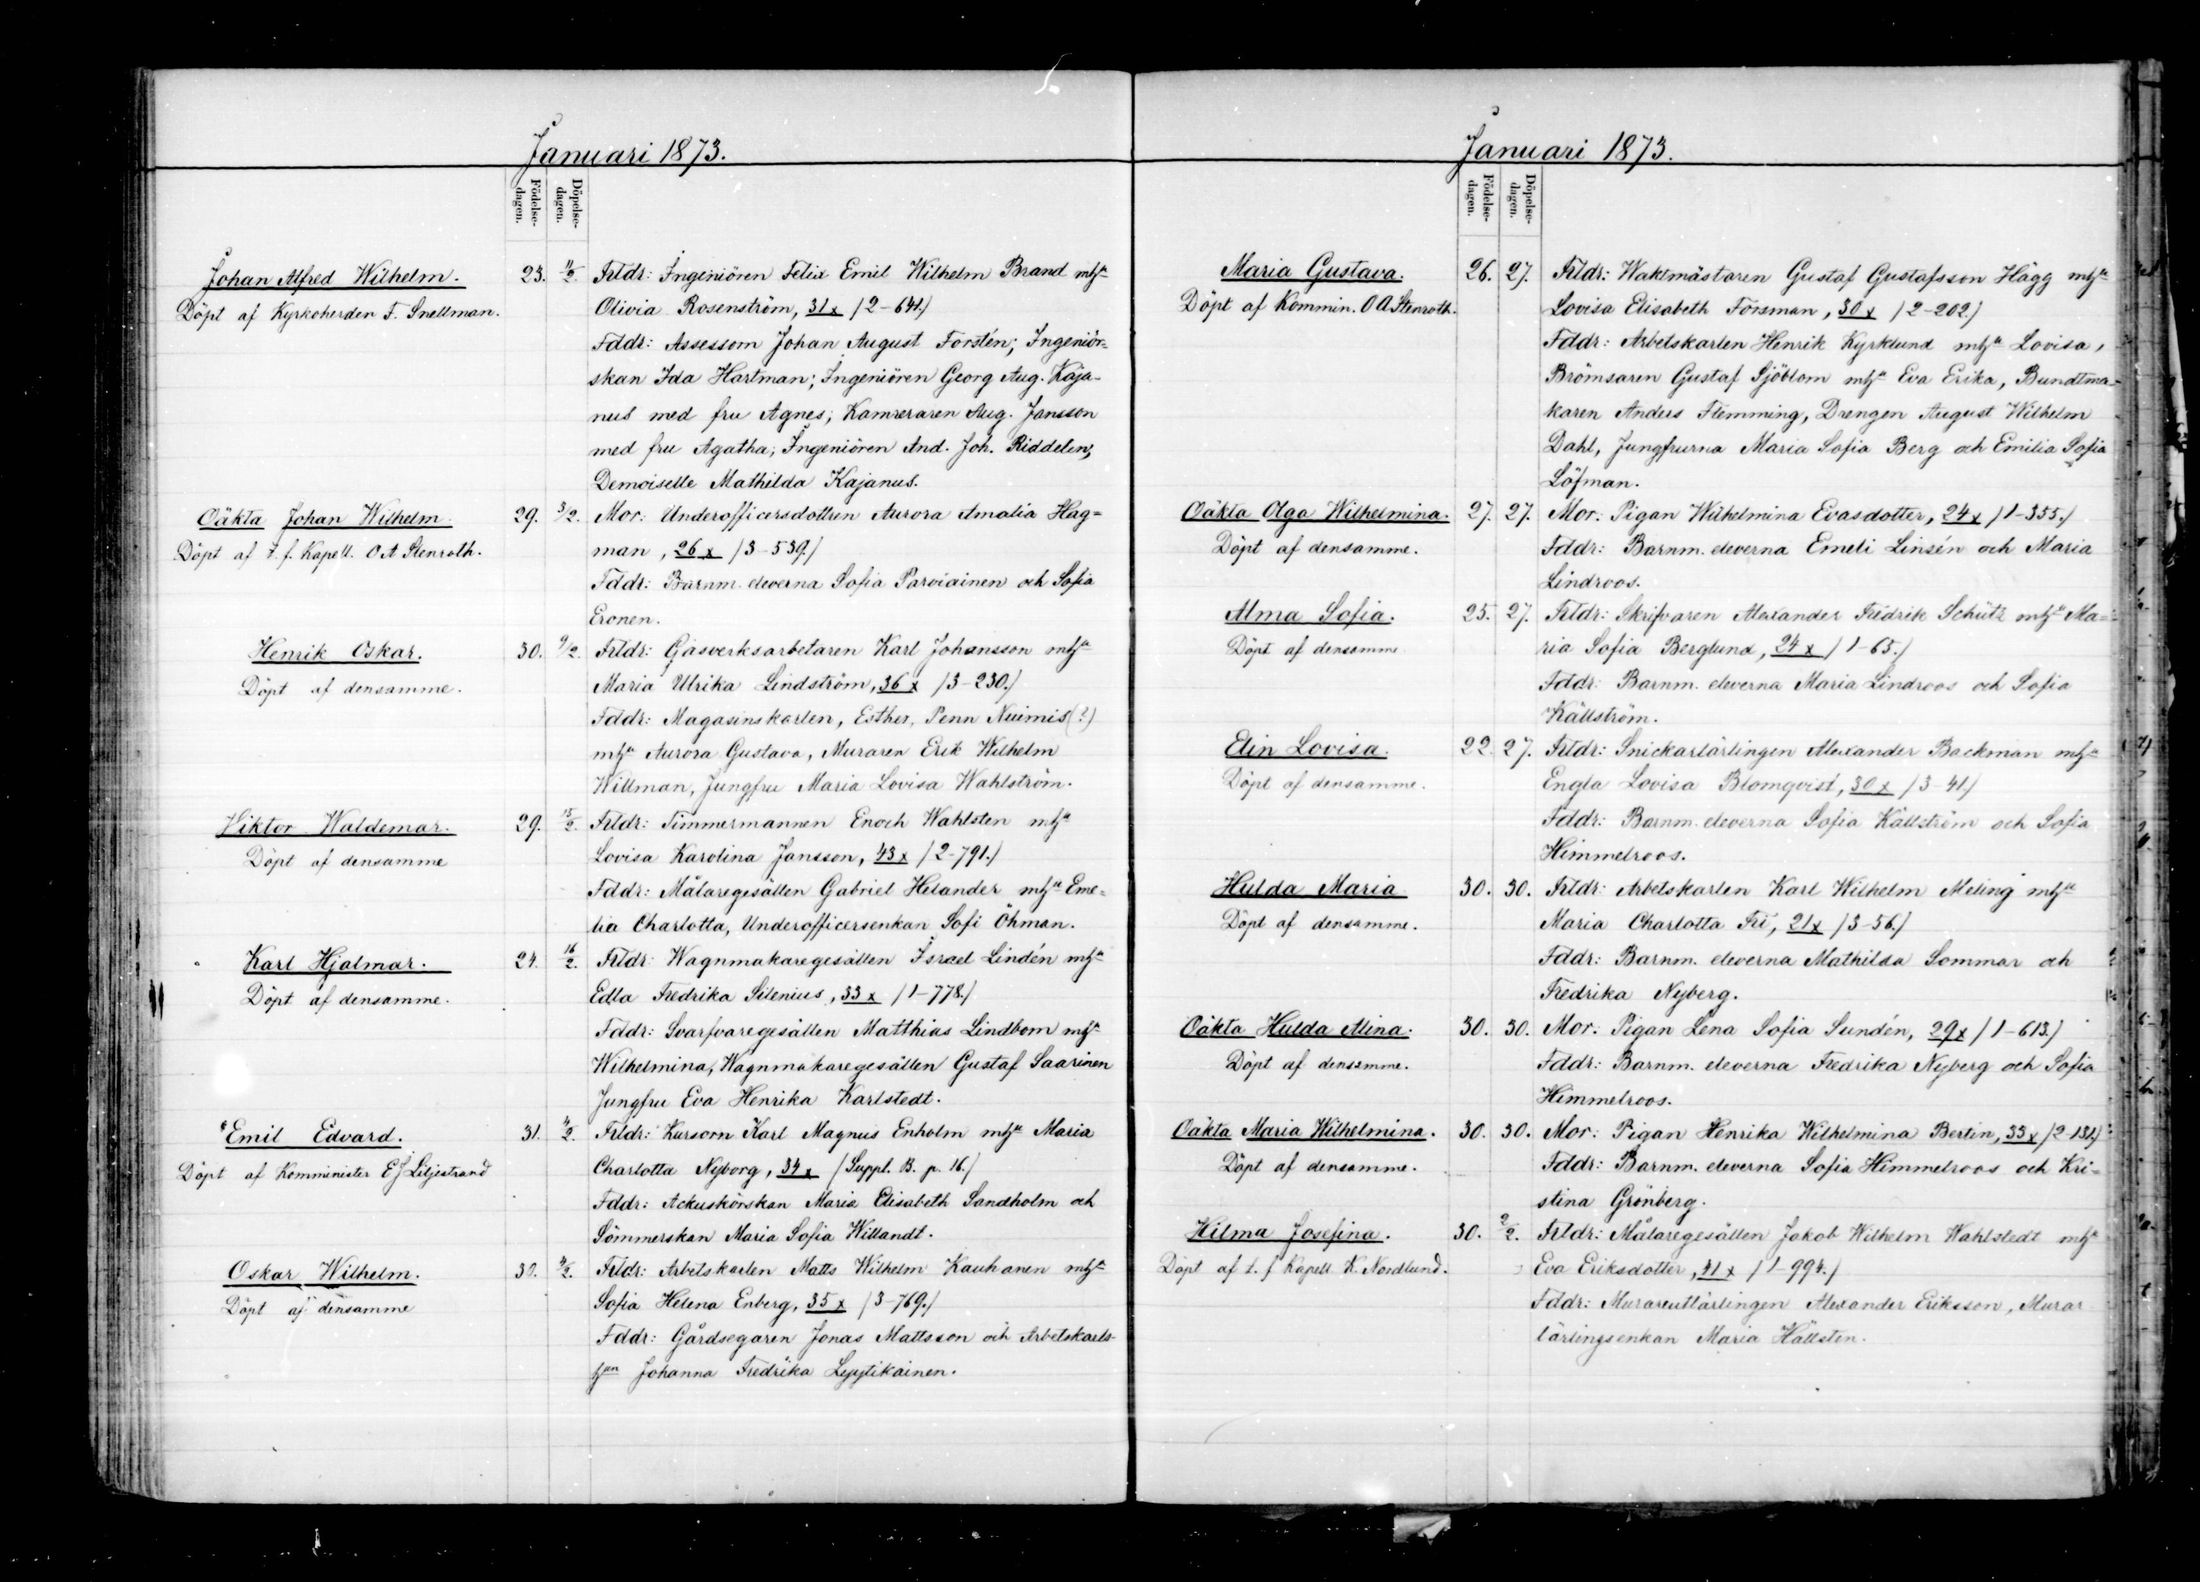 Januari 1873.
Födelse-
dagen.
Döpelse-
dagen.
Johan Alfred Wilhelm.
Döpt af Kyrkoherden F. Snellman.
23. 11/2. Frldr: Ingeniören Felix Emil Wilhelm Brand m hu
Olivia Rosenström, 31 x /2-641./
Fddr: Assessorn Johan August Forstén; Ingeniör-
skan Ida Hartman; Ingeniören Georg Aug. Kaja-
nus med fru Agnes; Kamreraren Aug. Jansson
med fru Agatha; Ingeniören And. Joh. Riddelin,
Demoiselle Mathilda Kajanus.
Oäkta Johan Wilhelm.
Döpt af t. f. Kapell. O A Stenroth.
29. 3/2. Mor: Underofficersdottren Aurora Amalia Hag=
man, 26 x /3-539./
Fddr: Barnm. eleverna Sofia Parviainen och Sofia
Eronen.
Henrik Oskar.
Döpt af densamme.
30. 9/2. Frldr: Gasverksarbetaren Karl Johansson m hu
Maria Ulrika Lindström, 36 x /3-230./
Fddr: Magasinskarlen, Esther, Penn Nuimis (?)
m hu Aurora Gustava, Muraren Erik Wilhelm
Willman, Jungfru Maria Lovisa Wahlström.
Viktor Waldemar.
Döpt af densamme
29. 15/2. Frldr: Timmermannen Enoch Wahlsten m hu
Lovisa Karolina Jansson, 43 x /2-791./
Fddr: Målaregesällen Gabriel Helander m hu Eme=
lia Charlotta, Underofficersenkan Sofi Öhman.
Karl Hjalmar.
Döpt af densamme.
24. 16/2. Frldr: Wagnmakaregesällen Israel Lindén m hu
Edla Fredrika Silenius, 33 x /1-778./
Fddr: Svarfvaregesällen Matthias Lindbom m hu
Wilhelmina, Wagnmakaregesällen Gustaf Saarinen
Jungfru Eva Henrika Karlstedt.
Emil Edvard.
Döpt af Komminister E J Liljestrand
31. Frldr: Kursorn Karl Magnus Enholm m hu Maria
Charlotta Nyborg, 34 x /Suppl. B. p. 16./
Fddr: Ackuskörskan Maria Elisabeth Sandholm och
Sömmerskan Maria Sofia Willandt.
Oskar Wilhelm.
Döpt af densamme
30. Frldr: Arbetskarlen Matts Wilhelm Kauhanen m hu
Sofia Helena Enberg, 35 x /3-769./
Fddr: Gårdsegaren Jonas Mattsson och Arbetskarls-
hun Johanna Fredrika Leppikainen.
Januari 1873.
Födelse-
dagen.
Döpelse-
dagen.
Maria Gustava.
Döpt af Kommin. O A Stenroth.
26. 27. Frldr: Waktmästaren Gustaf Gustafsson Hägg m hu
Lovisa Elisabeth Forsman, 30 x /2-202./
Fddr: Arbetskarlen Henrik Kyrklund m hu Lovisa,
Brömsaren Gustaf Sjöblom m hu Eva Erika, Bundtma-
karen Anders Flemming, Drengen August Wilhelm
Dahl, Jungfrurna Maria Sofia Berg och Emilia Sofia
Löfman.
Oäkta Olga Wilhelmina.
Döpt af densamme.
27. 27. Mor: Pigan Wilhelmina Evasdotter, 24 x /1-355./
Fddr: Barnm. eleverna Emeli Linsén och Maria
Lindroos.
Alma Sofia.
Döpt af densamme
25. 27. Frldr: Skrifvaren Alexander Fredrik Schütz m hu Ma=
ria Sofia Berglund, 24 x /1-65./
Fddr: Barnm. eleverna Maria Lindroos och Sofia
Källström.
Elin Lovisa.
Döpt af densamme.
22. 27. Frldr: Snickarlärlingen Alexander Backman m hu
Engla Lovisa Blomqvist, 30 x /3-41./
Fddr: Barnm. eleverna Sofia Källström och Sofia
Himmelroos.
Hulda Maria
Döpt af densamme.
30. 30. Frldr: Arbetskarlen Karl Wilhelm Meling m hu
Maria Charlotta Fri, 21 x /3-56./
Fddr: Barnm. eleverna Mathilda Sommar och
Fredrika Nyberg.
Oäkta Hulda Alina.
Döpt af densamme.
30. 30. Mor: Pigan Lena Sofia Sundén, 29 x /1-613./
Fddr: Barnm. eleverna Fredrika Nyberg och Sofia
Himmelroos.
Oäkta Maria Wilhelmina.
Döpt af densamme.
30. 30. Mor: Pigan Henrika Wilhelmina Bertin, 33 x /2-131./
Fddr: Barnm. eleverna Sofia Himmelroos och Kri=
stina Grönberg.
Hilma Josefina.
Döpt af t. f Kapell. K. Nordlund.
30. 2/2. Frldr: Målaregesällen Jakob Wilhelm Wahlstedt m hu
Eva Eriksdotter, 41 x /1-994./
Fddr: Murareutlärlingen Alexander Eriksson, Murar
lärlingsenkan Maria Hällsten.